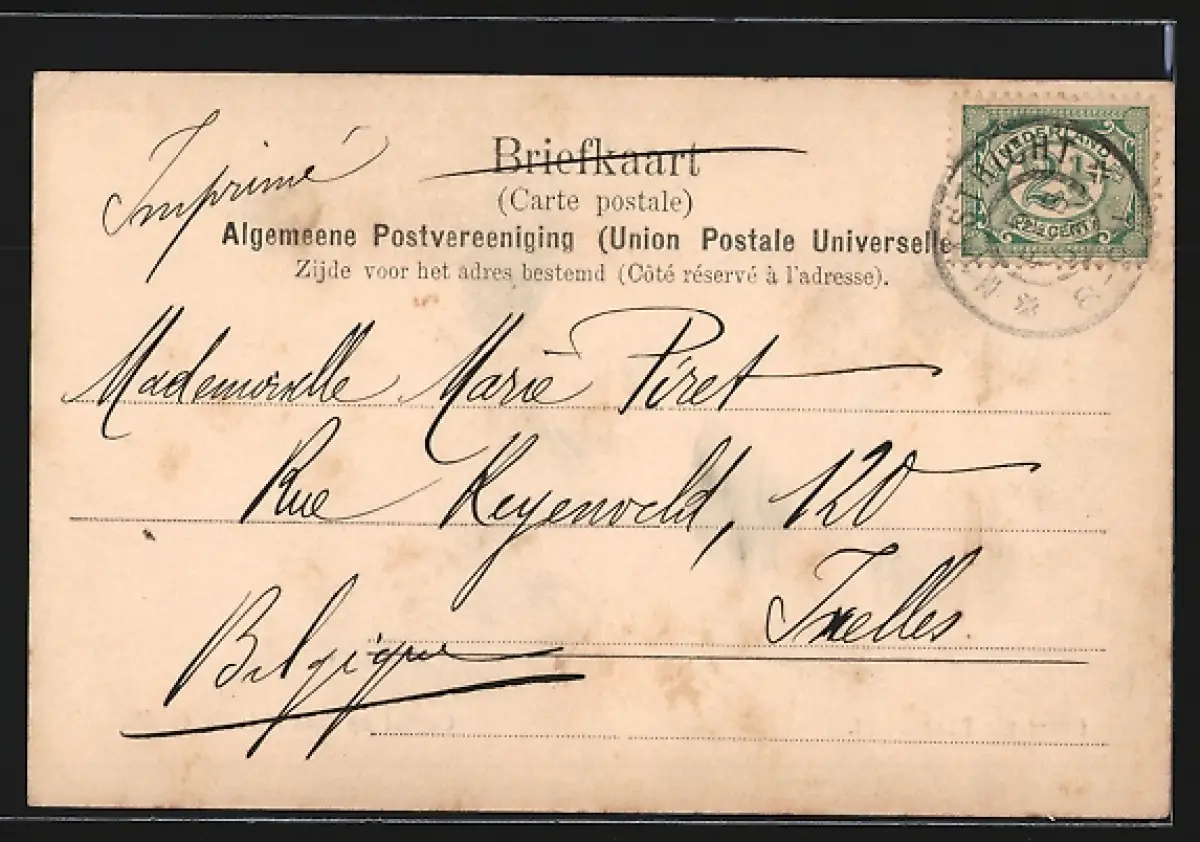 Imprimé
Briefkaart
(Carte postale)
Algemeene Postvereeniging (Union Postale Universelle
Zijde voor het adres bestemd (Côté réservé à l'adresse).
NEDERLAND
CENT
Mademoiselle Marie Piret
Rue Keyenveld, 120
Ixelles
Belgique